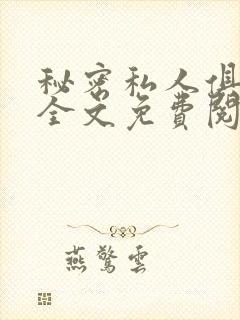 秘密私人俱
全文免費閱
燕驚雲